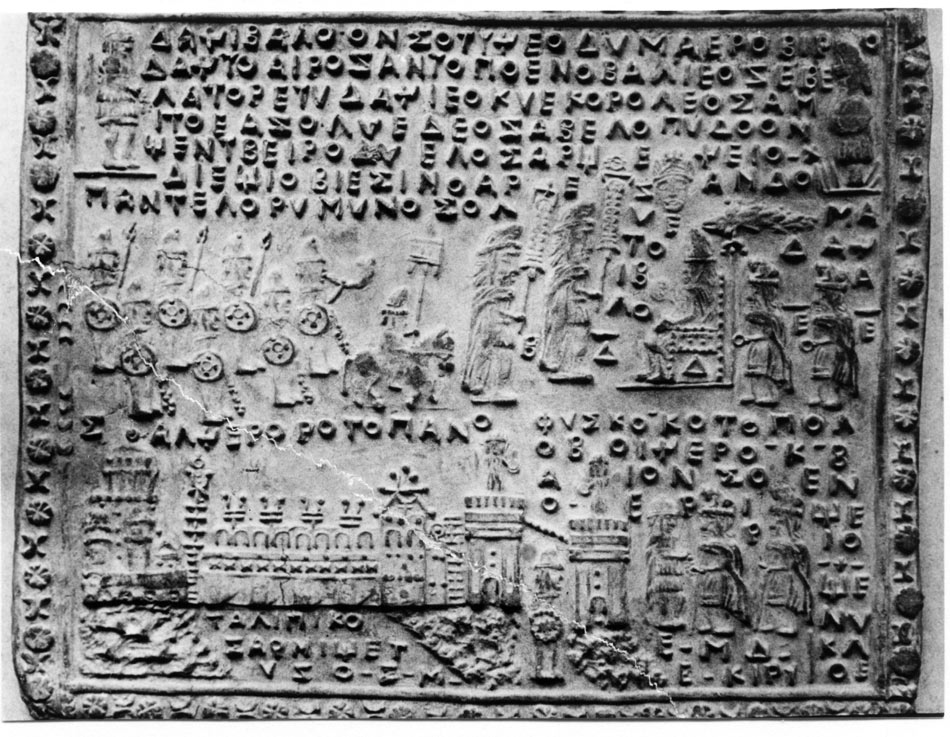 ΔΑΨΙΒΑΛΟ·ΟΝΣΟΤΥΨΕΟΔΥΜΑΕΡΟΒΙΡΟ
ΔΑΨΤΟΑΙΡΟΣΑΝΤΟΠΟΕΝΟΒΑΛΙΕΟΣΕΒΕ
ΛΑΤΟΡΕΤΥΔΑΨΙΕΟΚΥΕΚΟΡΟΛΕΟΣΑΜ
ΠΟΕΑΣΟ·ΛΥΕΔΕΟΣΑΒΕΛΟΠΥΔΟΟΝ
ΨΕΝΤΒΕΙΡΟΔΥΕΛΟΣΑΡΨΕΨΕΙΟ·Τ
ΔΙΕΨΙΟΒΙΕΣΙΝΟΑΡΕΣΑΝΔΟ
ΠΑΝΤΕΛΟΡΥΜΥΝΟΣΟΛ
Υ
ΤΟ
ΙΒ
ΛΟ
ΜΑ
ΔΑΨ
Α
Ε Ε
Β Δ
Δ
Σ·ΑΛΨΕΡΟΡΟΤΟΠΑΝΟ
ΦΥΣΚΟ·ΚΟΤΟΠΟΛ
ΟΒΟΙΨΕΡΟ·Κ·Β
ΑΟ
ΙΟΝΣΟΚΕΝ
Ε Ρ Ι ΨΕ
Ρ ΙΟ
ΨΕ
ΝΥ
ΤΑΛΙΠΙΚΟ
ΣΑΡΜΙΨΕΤ
ΥΣΟ·Σ·Μ
Ε·ΜΔ·ΚΛ
Ε·ΚΙΡΥΙΟΕ